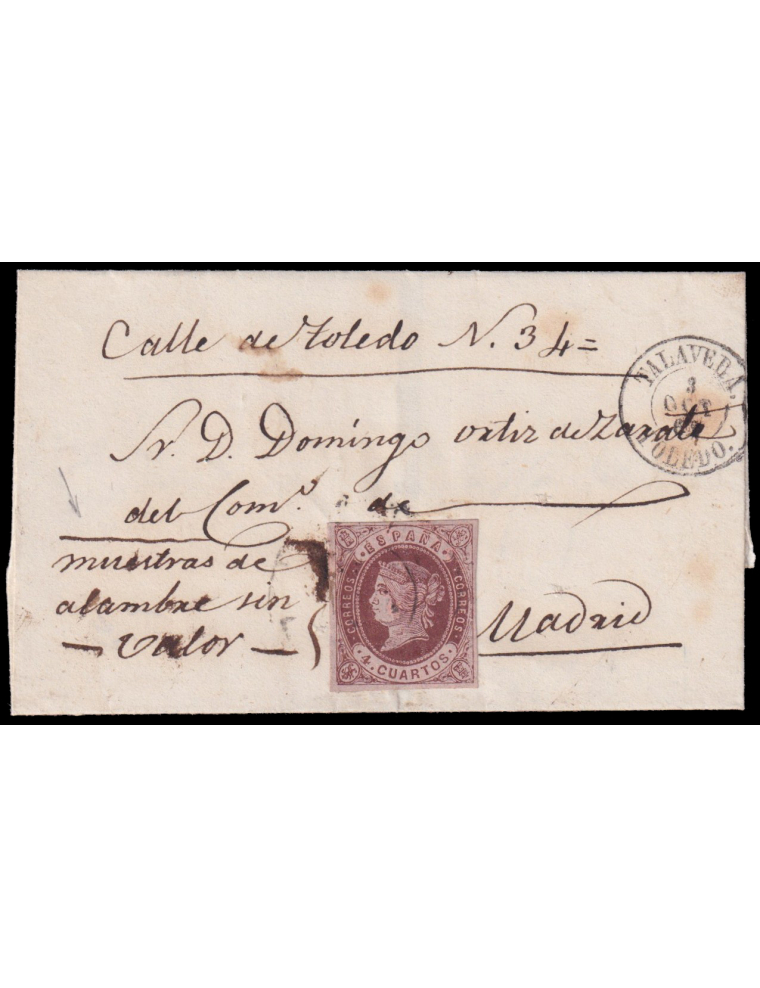 Calle de Toledo N. 34=
Sr. D. Domingo Ortiz de Zarate
del Com.º de
muestras de
alambre sin
— valor —
Madrid
TALAVERA.
3
OCT
TOLEDO.
ESPAÑA
CORREOS
CORREOS
4. CUARTOS